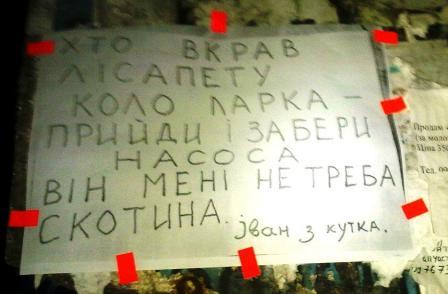 ХТО ВКРАВ
ЛІСАПЕТУ
КОЛО ПАРКА –
ПРИЙДИ І ЗАБЕРИ
НАСОСА
ВІН МЕНІ НЕ ТРЕБА
СКОТИНА. јван з кутка.
Продам
Ціна 350
Тел. 09